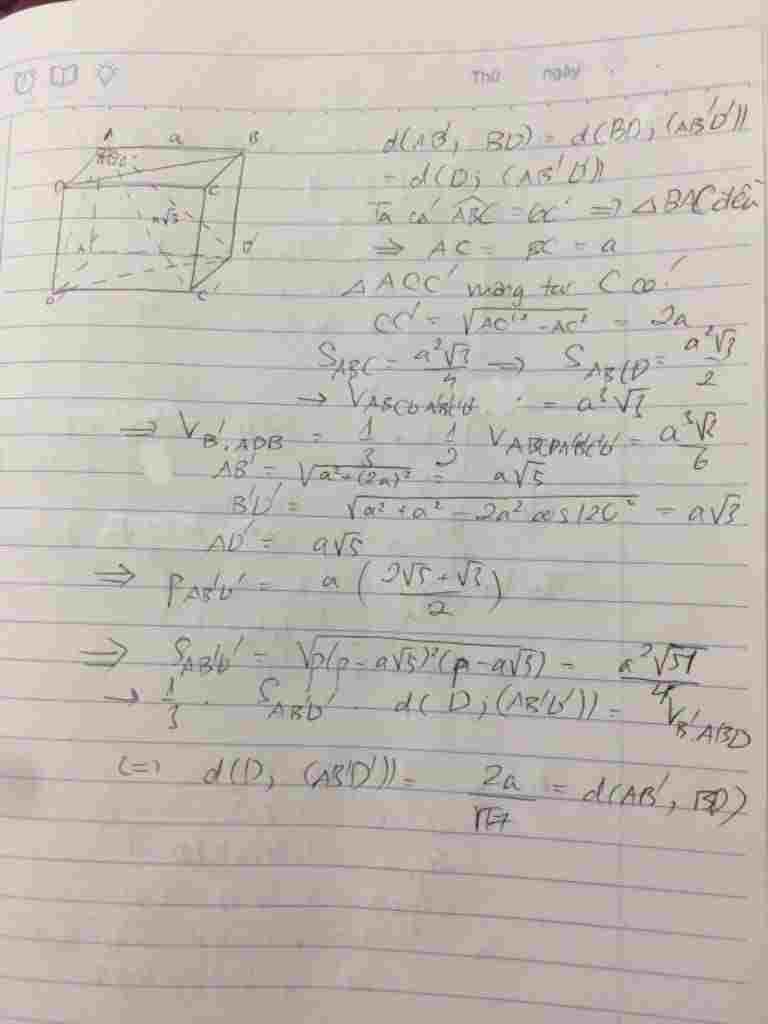 Thứ ngày
A a B
C
a√5
D'
C'
d(AB', BD) = d(BD, (AB'D'))
= d(D; (AB'D'))
Ta có ABC = 60° => △BAC đều
=> AC = BC = a
△ACC' vuông tại C có:
CC' = √AC'² - AC² = 2a
S_ABC = a²√3/4 => S_ABCD = a²√3/2
→ V_ABCDA'B'C'D' = a³√3
=> V_B'.ADB = 1/3 · 1/2 V_ABCDA'B'C'D' = a³√3/6
AB' = √a²+(2a)² = a√5
B'D' = √a² + a² - 2a² cos120° = a√3
AD' = a√5
=> P_AB'D' = a (2√5 + √3 / 2)
=> S_AB'D' = √p(p - a√5)²(p - a√3) = a²√51/4
→ 1/3 · S_AB'D' · d(D; (AB'D')) = V_B'.ABD
(=) d(D, (AB'D')) = 2a/√17 = d(AB', BD)